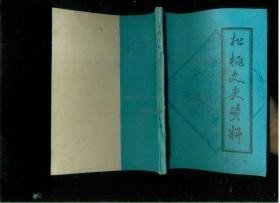 松桃文史资料